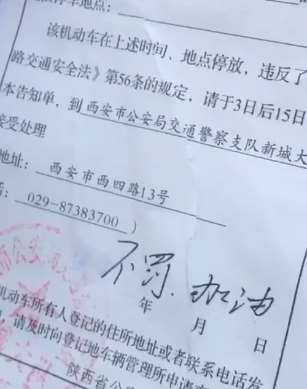 停车地点：
该机动车在上述时间、地点停放，违反了
路交通安全法》第56条的规定，请于3日后15日
本告知单，到西安市公安局交通警察支队新城大
接受处理
地址：西安市西四路13号
：029-87383700）
不罚.加油
年 月 日
机动车所有人登记的住所地址或者联系电话发
，请及时向登记地车辆管理所申请
陕西省公